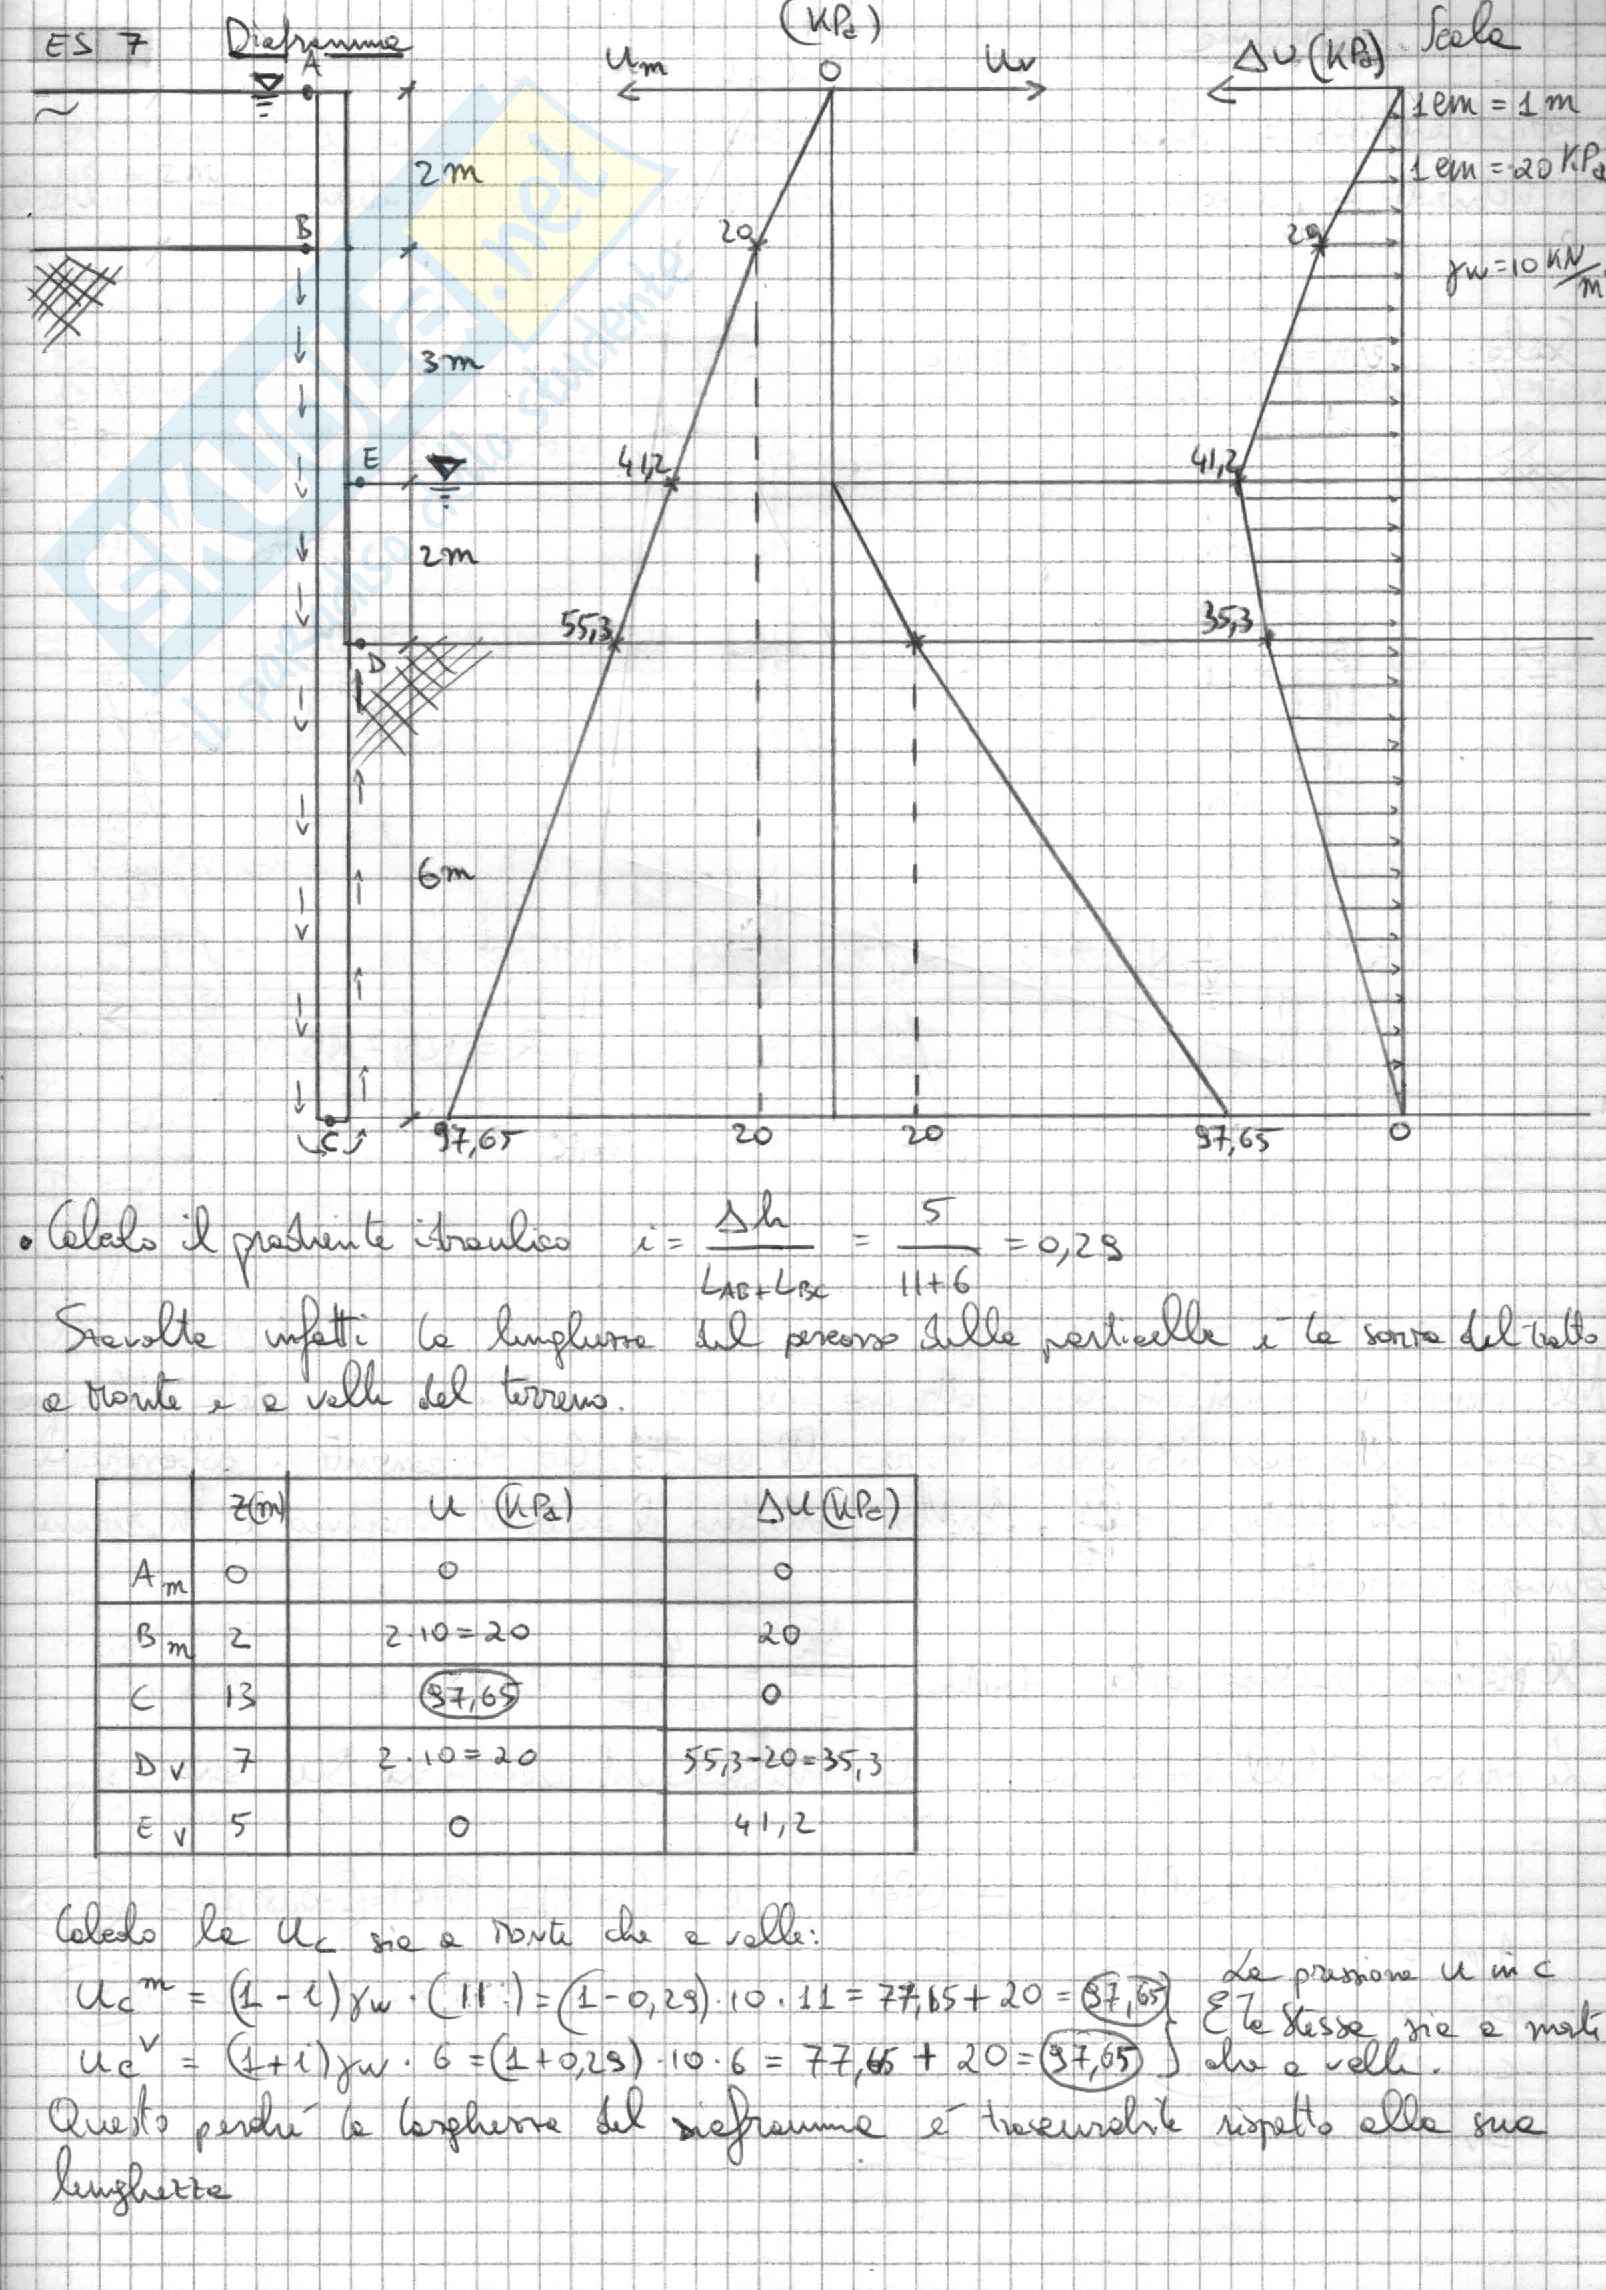 ES 7 Diaframma
(KPa)
Um 0 Uv
ΔU (KPa) Scala
1 cm = 1 m
1 cm = 20 KPa
γw = 10 KN/m
A
2m
B
20
20
3m
E
41,2
41,2
2m
55,3
35,3
D
6m
C
97,65 20 20 97,65 0
SKUOLA.net
il paradiso dello studente
• Calcolo il gradiente idraulico i = Δh / (LAB + LBC) = 5 / (11+6) = 0,29
Stavolta infatti la lunghezza del percorso della particella è la somma del tratto
a monte e a valle del terreno.
z(m) U (KPa) ΔU (KPa)
Am 0 0 0
Bm 2 2·10=20 20
C 13 97,65 0
Dv 7 2·10=20 55,3-20=35,3
Ev 5 0 41,2
Calcolo la Uc sia a monte che a valle:
Ucm = (1-i)γw · (11) = (1-0,29)·10·11 = 77,65+20 = 97,65
Ucv = (1+i)γw · 6 = (1+0,29)·10·6 = 77,65 + 20 = 97,65
La pressione U in C
È la stessa sia a monte
che a valle.
Questo perché la larghezza del diaframma é trascurabile rispetto alla sua
lunghezza